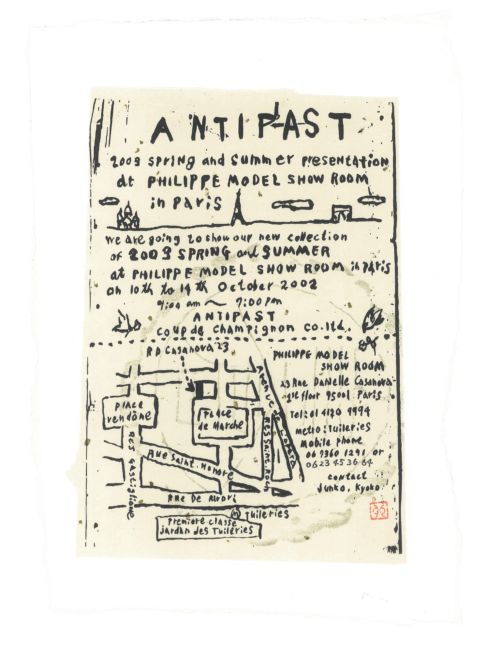 ANTIPAST
2003 SPRING and Summer Presentation
at PHILIPPE MODEL SHOW ROOM
in PARIS
We are going to show our new collection
of 2003 SPRING and SUMMER
at PHILIPPE MODEL SHOW ROOM in PARIS
on 10th to 14th October 2002
9:00 am ~ 7:00 pm
ANTIPAST
coup de champignon co.ltd.
R D Casanova 23
Place
vendône
Place
de Marche
Avenue de L'opera
RES Saint-Roch
RES Castiglione
Rue Saint-Honore
Rue De Rivori
M Tuileries
Premiere classe
Jardin des Tuileries
PHILIPPE MODEL
SHOW ROOM
23 Rue Danielle Casanova
1st floor 95001 Paris
Tel: 01 4120 9994
metro: Tuileries
Mobile phone
06 7360 1291 or
0623453664
contact
Junko, Kyoko